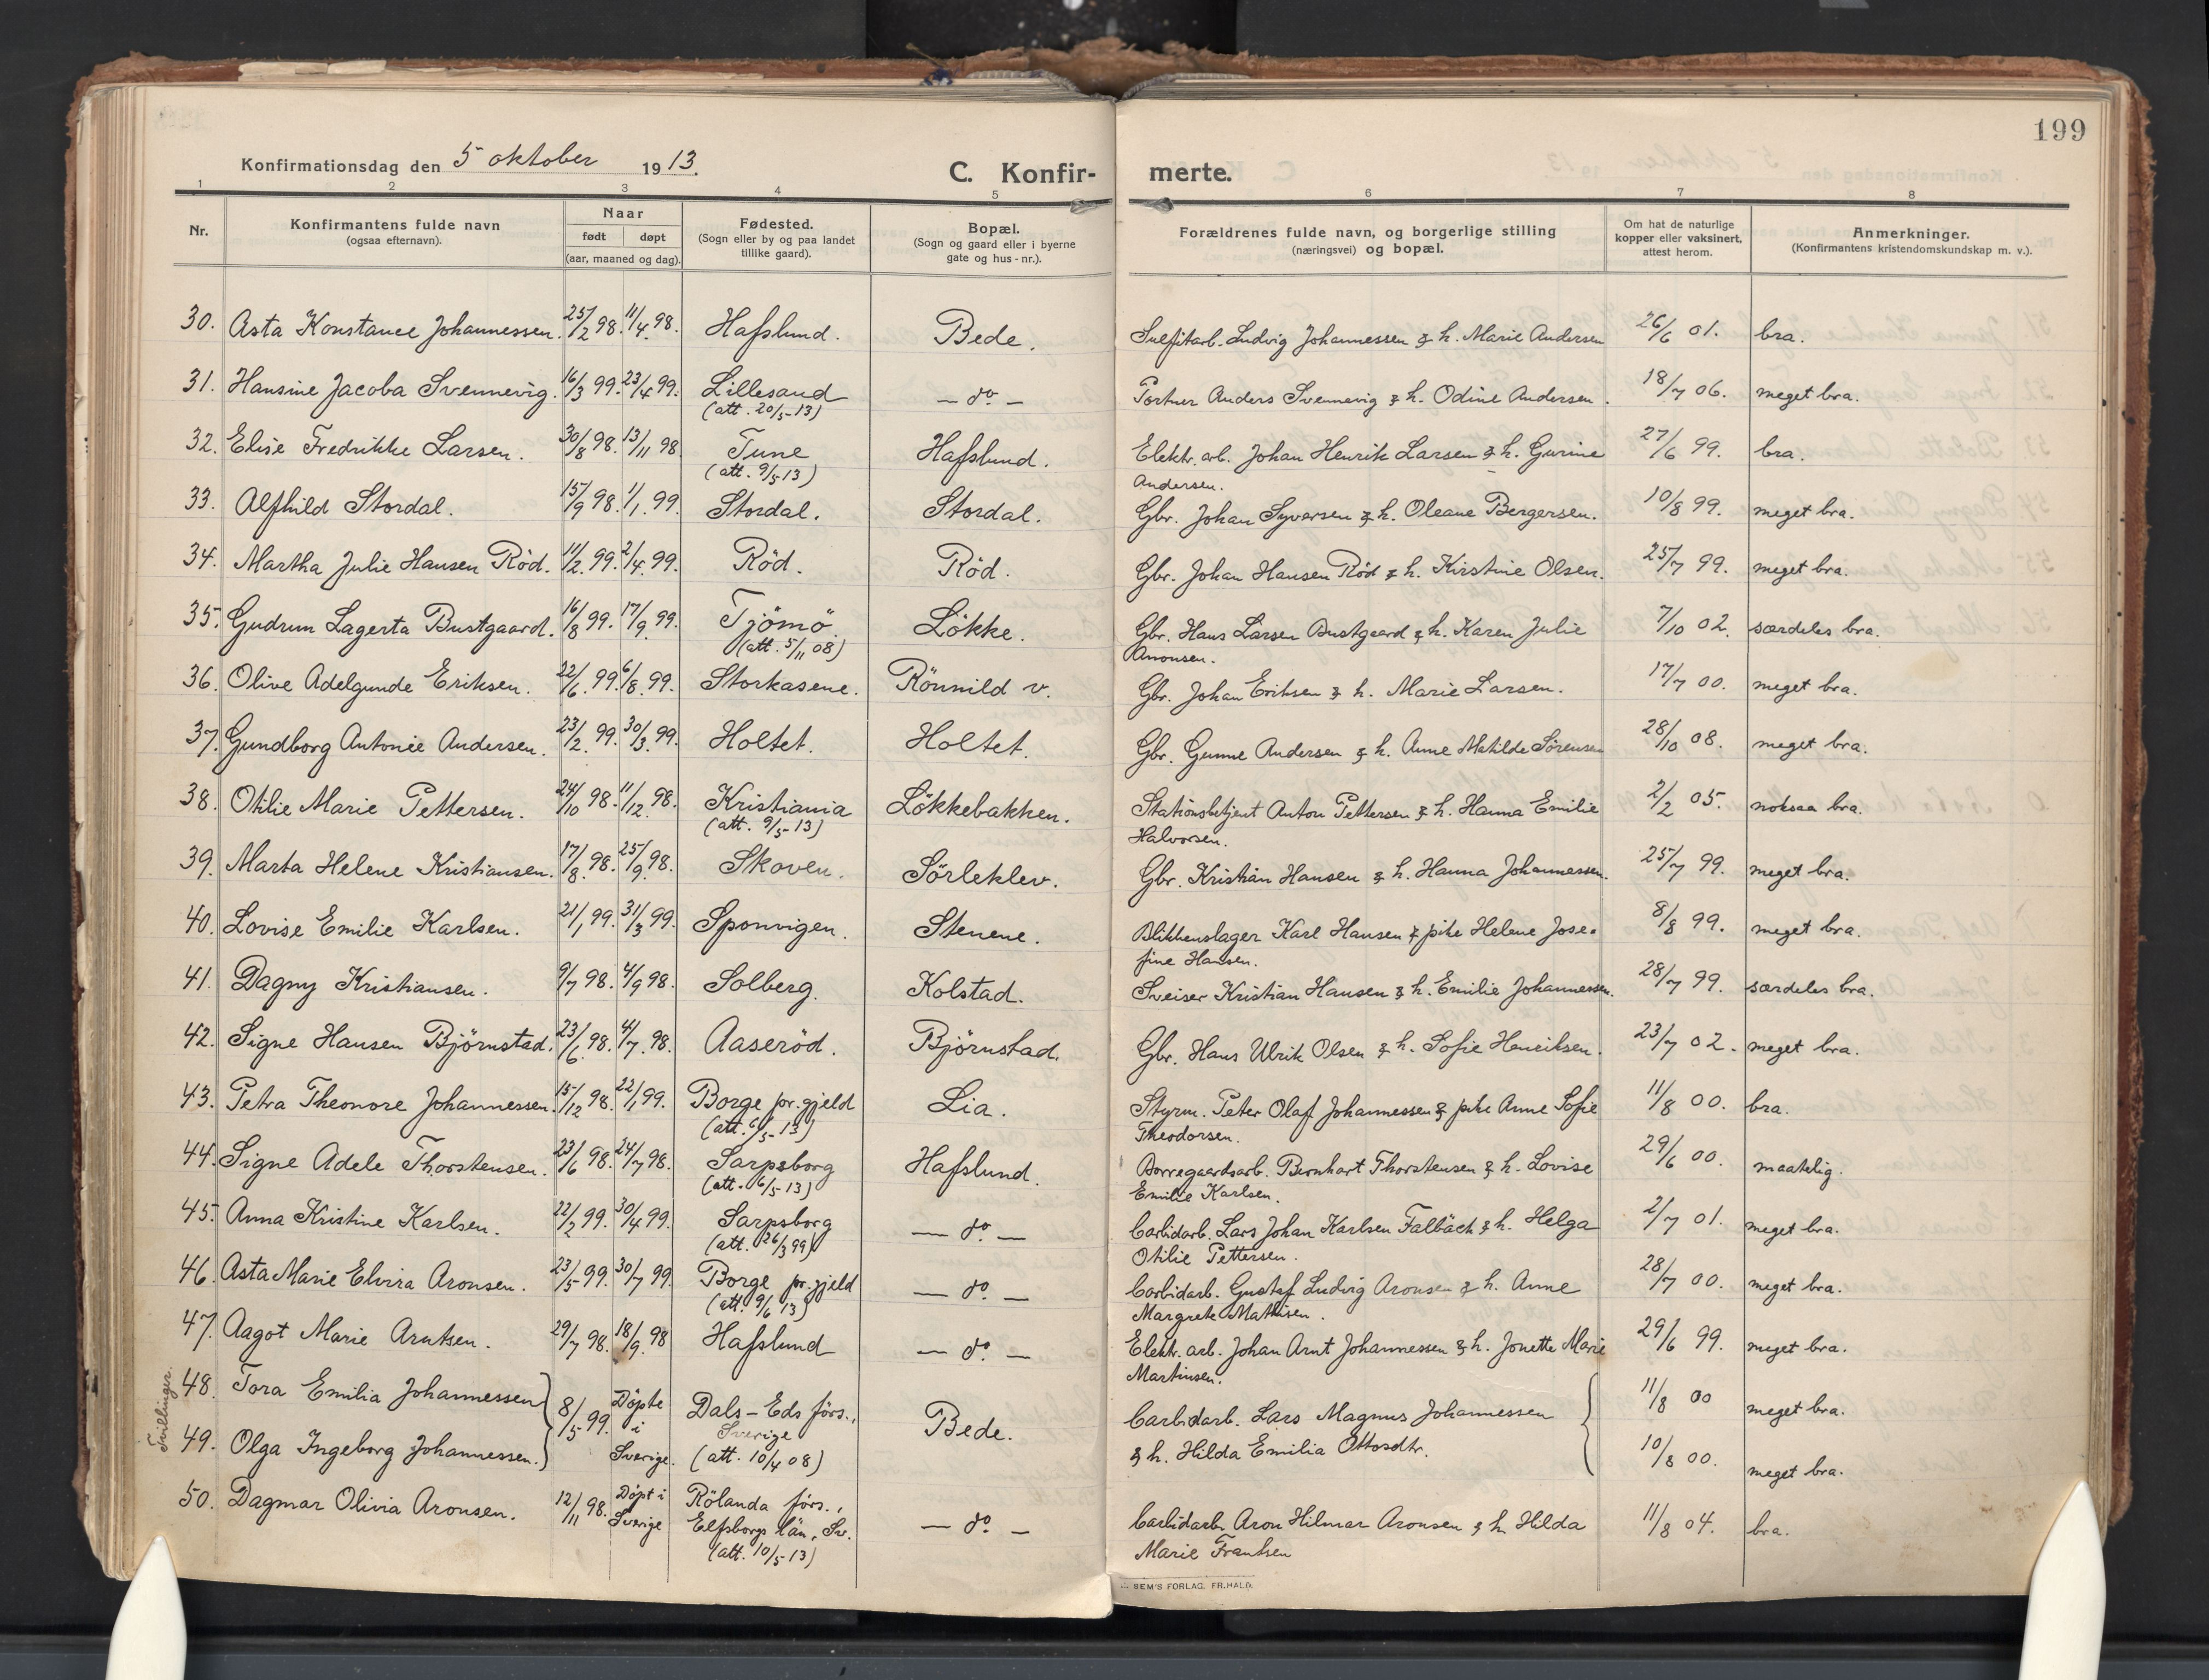 199
Konfirmationsdag den 5 oktober 1913.
C. Konfir- merte.
1 2 3 4 5 6 7 8
Nr.
Konfirmantens fulde navn
(ogsaa efternavn).
Naar
født døpt
(aar, maaned og dag).
Fødested.
(Sogn eller by og paa landet
tillike gaard).
Bopæl.
(Sogn og gaard eller i byerne
gate og hus-nr.).
Forældrenes fulde navn, og borgerlige stilling
(næringsvei) og bopæl.
Om hat de naturlige
kopper eller vaksinert,
attest herom.
Anmerkninger.
(Konfirmantens kristendomskundskap m. v.).
30. Asta Konstance Johannessen. 25/2 98. 11/4 98. Hafslund. Bede. Sulfitarb. Ludvig Johannessen & h. Marie Andersen 26/6 01. bra.
31. Hansine Jacoba Svennevig. 16/3 99. 23/4 99. Lillesand — do — Portner Anders Svennevig & h. Odine Andersen. 18/7 06. meget bra.
(att. 20/5-13)
32. Elise Fredrikke Larsen. 30/8 98. 13/11 98. Tune Hafslund. Elektr. arb. Johan Henrik Larsen & h. Gurine 27/6 99. bra.
(att. 9/5-13) Andersen.
33. Alfhild Stordal. 15/9 98. 1/1. 99. Stordal. Stordal. Gbr. Johan Syversen & h. Oleane Bergersen. 10/8 99. meget bra.
34. Martha Julie Hansen Röd. 11/2. 99. 2/4. 99. Röd. Röd. Gbr. Johan Hansen Röd & h. Kirstine Olsen. 25/7 99. meget bra.
35. Gudrun Lagerta Bustgaard. 16/8 99. 17/9 99. Tjömö Lökke. Gbr. Hans Larsen Bustgaard & h. Karen Julie 7/10 02. særdeles bra.
(att. 5/11 08) Anonsen.
36. Olive Adelgunde Eriksen. 22/6. 99. 6/8. 99. Storkasene. Rönnild v. Gbr. Johan Eriksen & h. Marie Larsen. 17/7 00. meget bra.
37. Gundborg Antonie Andersen. 23/2. 99. 30/3. 99. Holtet. Holtet. Gbr. Gunne Andersen & h. Anne Matilde Sörensen 28/10 08. meget bra.
38. Otilie Marie Pettersen. 24/10 98. 11/12. 98. Kristiania Lökkebakken. Stationsbetjent Anton Pettersen & h. Hanna Emilie 2/2 05. noksaa bra.
(att. 9/5-13) Halvorsen.
39. Marta Helene Kristiansen. 17/8. 98. 25/9. 98. Skoven. Sörleklev. Gbr. Kristian Hansen & h. Hanna Johannessen. 25/7 99. meget bra.
40. Lovise Emilie Karlsen. 21/1 99. 31/3 99. Sponvigen. Stenene. Blikkenslager Karl Hansen & pike Helene Jose- 8/8 99. meget bra.
fine Hansen.
41. Dagny Kristiansen. 9/7 98. 4/9 98. Solberg. Kolstad. Sveiser Kristian Hansen & h. Emilie Johannessen. 28/7 99. særdeles bra.
42. Signe Hansen Björnstad. 23/6. 98. 4/7. 98. Aaseröd. Björnstad. Gbr. Hans Ulrik Olsen & h. Sofie Henriksen. 23/7 02. meget bra.
43. Petra Theonore Johannessen. 15/12 98. 22/1 99. Borge pr.gjeld Lia. Styrm. Peter Olaf Johannessen & pike Anne Sofie 11/8 00. bra.
(att. 6/5-13) Theodorsen.
44. Signe Adele Thorstensen. 23/6 98. 24/7 98. Sarpsborg Hafslund. Borregaardsarb. Bernhart Thorstensen & h. Lovise 29/6 00. maatelig.
(att. 6/5-13) Emilie Karlsen.
45. Anna Kristine Karlsen. 22/2 99. 30/4 99. Sarpsborg — do. — Carbidarb. Lars Johan Karlsen Falbäck & h. Helga 2/7 01. meget bra.
(att. 26/3 99) Otilie Pettersen.
46. Asta Marie Elvira Aronsen. 23/5 99. 30/7 99. Borge pr.gjeld — do. — Carbidarb. Gustaf Ludvig Aronsen & h. Anne 28/7 00. meget bra.
(att. 9/6 13) Margrete Mathisen.
47. Aagot Marie Arntsen. 29/7 98. 18/9. 98 Hafslund — do. — Elektr. arb. Johan Arnt Johannessen & h. Jonette Marie 29/6 99. meget bra.
Martinsen.
Tvillinger.
48. Tora Emilia Johannessen 8/5 99. Döpte i Sverige. Dals-Eds förs., Bede. Carbidarb. Lars Magnus Johannessen 11/8 00 meget bra.
Sverige
49. Olga Ingeborg Johannessen. (att. 10/4 08) & h. Hilda Emilia Ottosdtr. 10/8 00. meget bra.
50. Dagmar Olivia Aronsen. 12/11 98. Döpt i Sverige Rölanda förs., — do — Carbidarb. Aron Hilmar Aronsen & h. Hilda 11/8 04. bra.
Elfsborgs län, Sv. Marie Frantsen
(att. 10/5-13)
SEM'S FORLAG. FR.HALD.